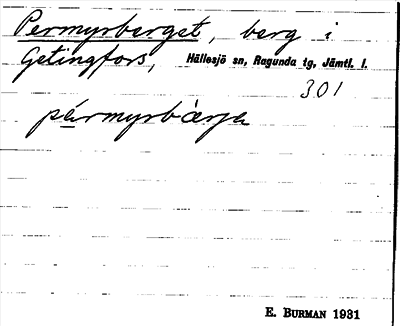 Permyrberget, berg i
Getingfors, Hällesjö sn, Ragunda tg, Jämtl. l.
301
pérmyrbàrje
E. BURMAN 1931